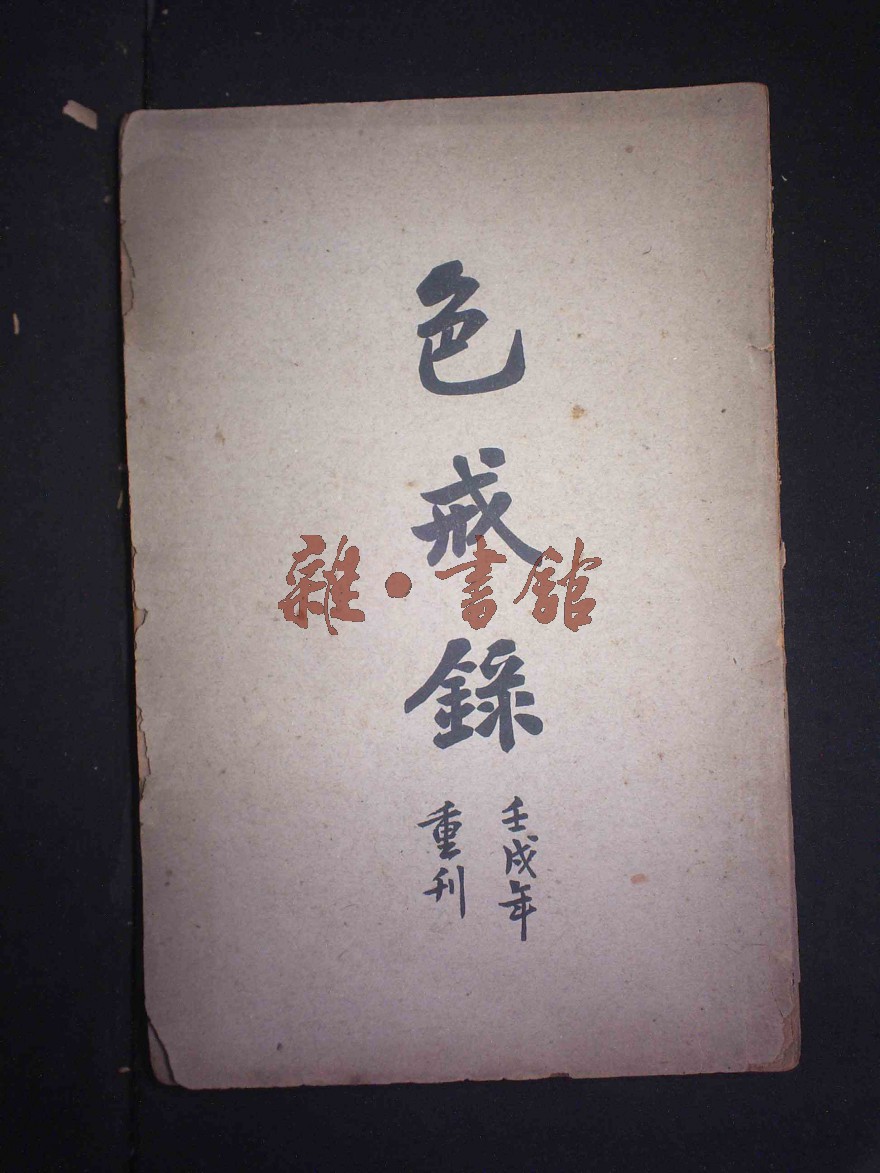 色戒錄
壬戌年
重刊
雜·書館